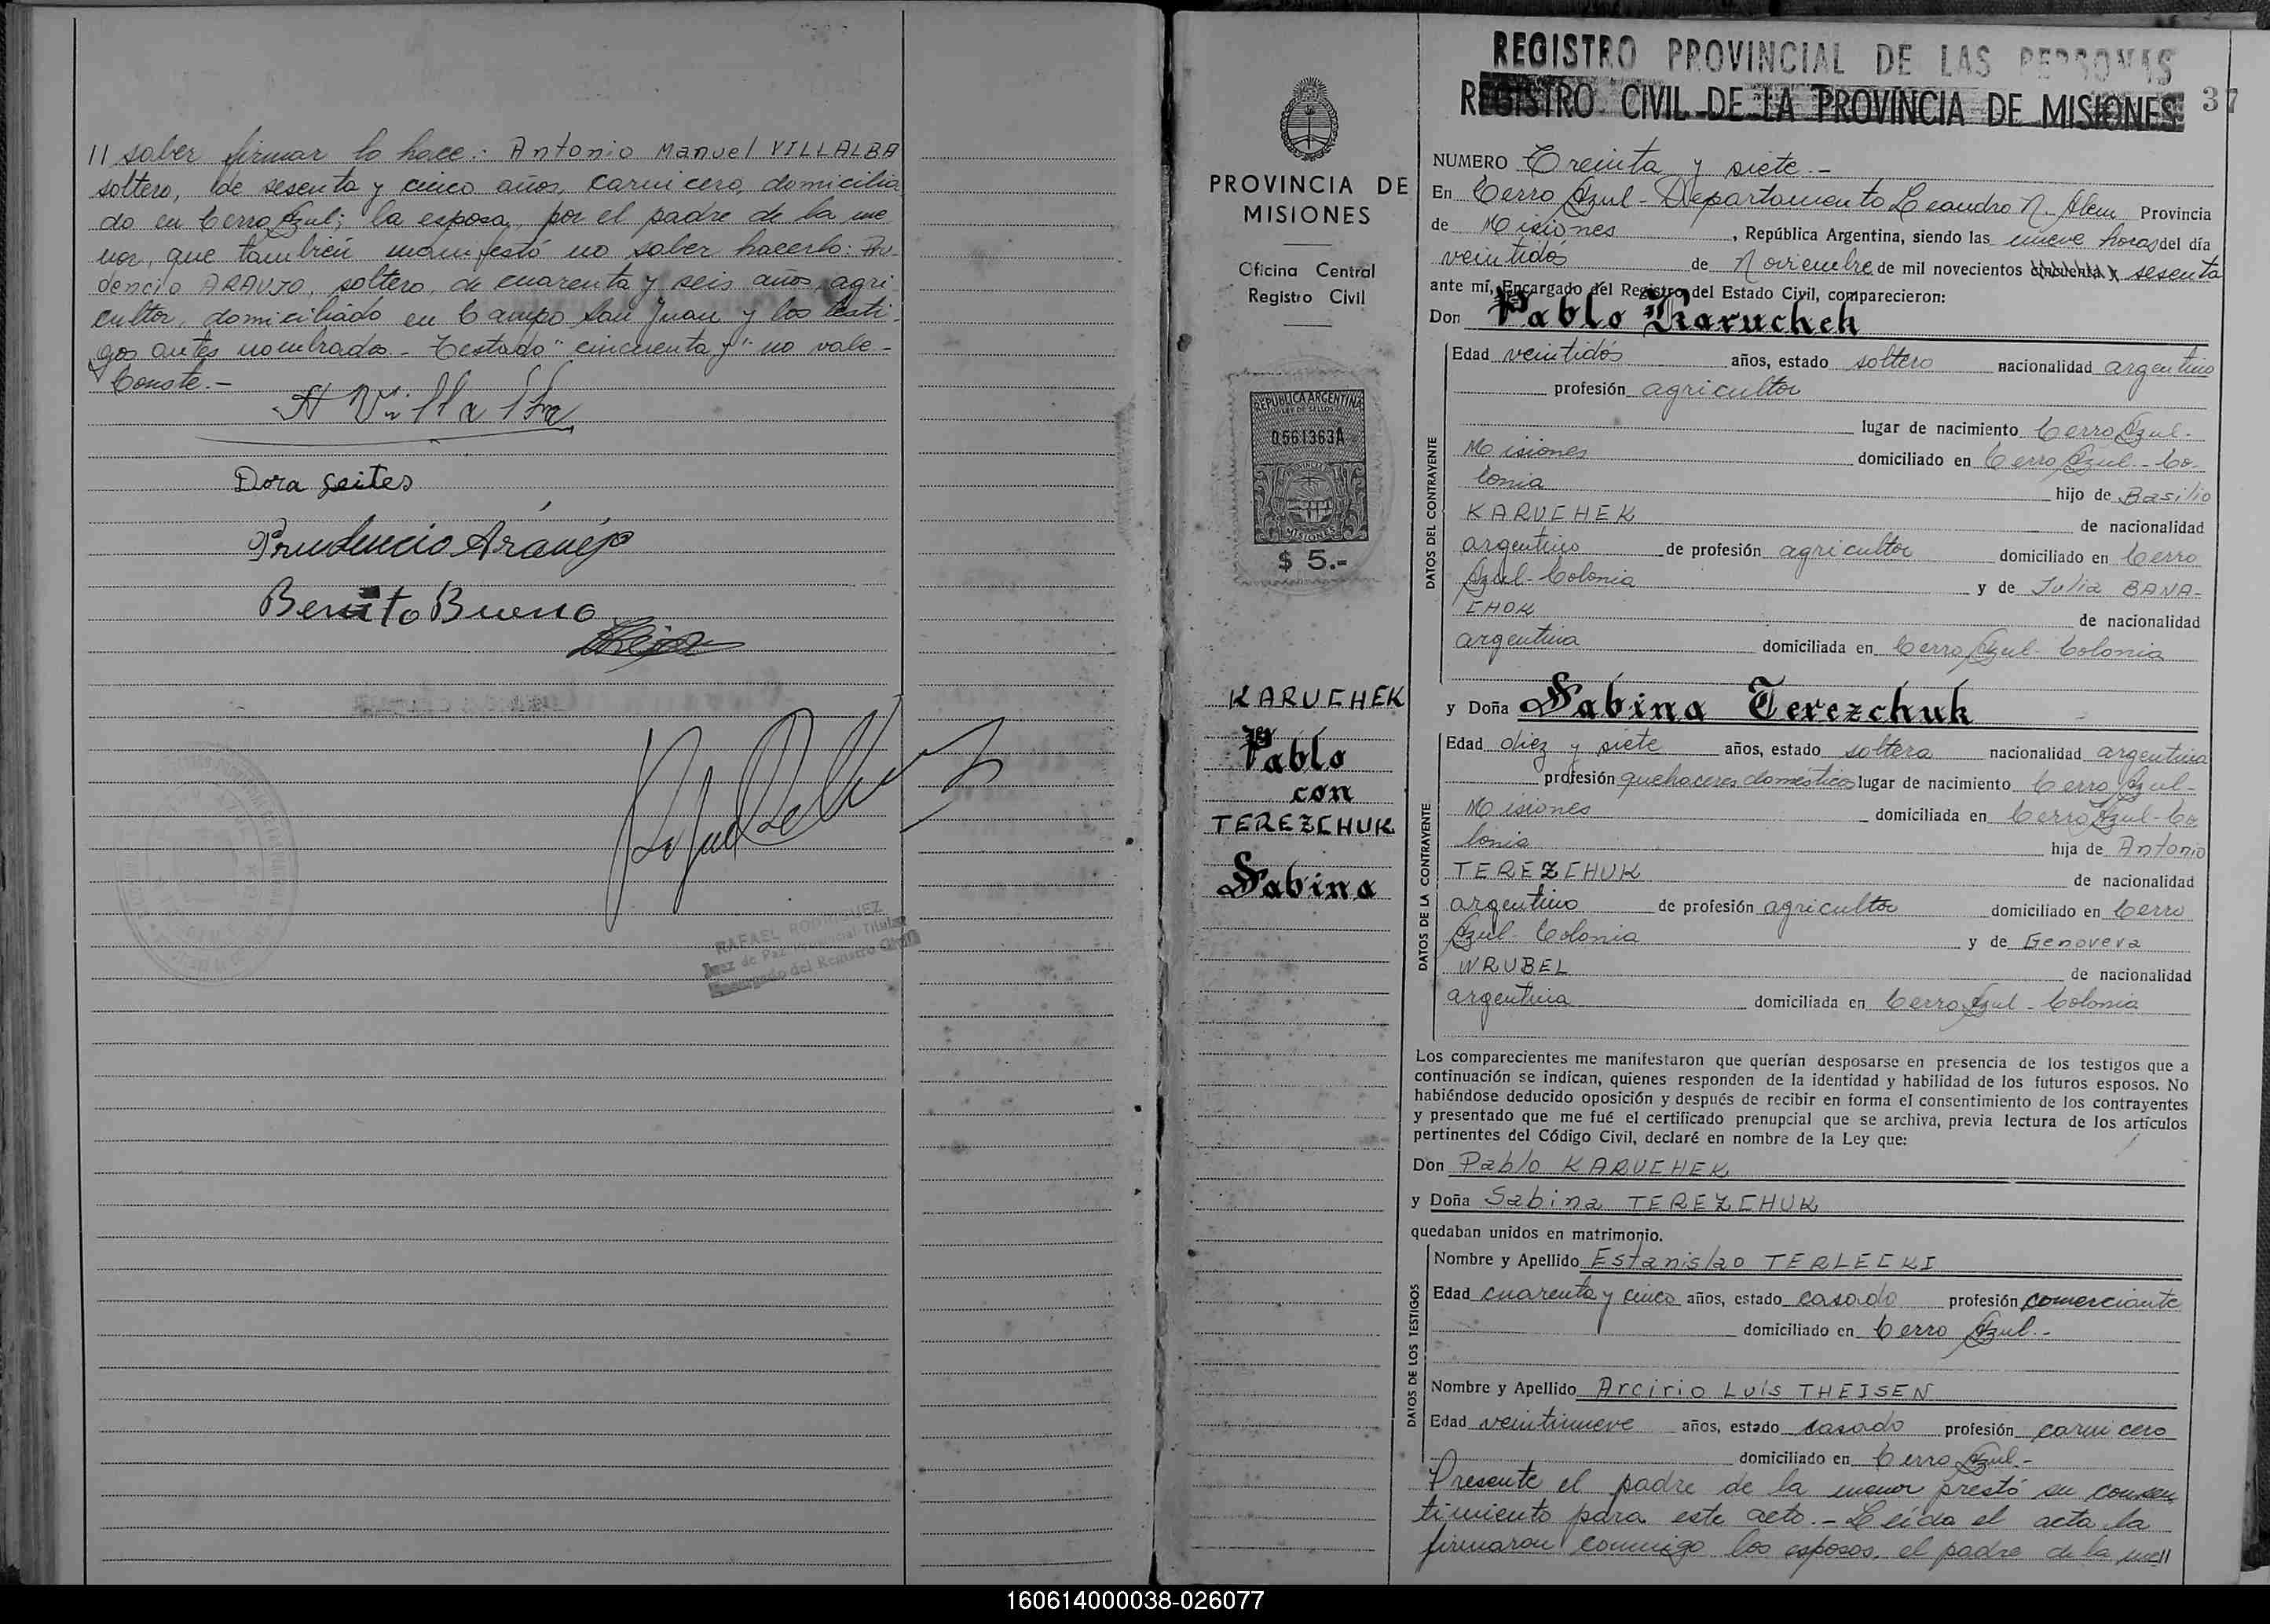 // saber firmar lo hace: Antonio Manuel VILLALBA
soltero, de sesenta y cinco años, carnicero, domicilia
do en Cerro Azul; la esposa, por el padre de la me
nor, que también manifestó no saber hacerlo: Pru-
dencio ARAUJO, soltero, de cuarenta y seis años, agri
cultor, domiciliado en Campo San Juan y los testi-
gos antes nombrados.- Testado "cincuenta y" no vale-
Conste.-
A Villalba
Dora Seites
Prudencio Araujo
Benito Bueno
RAFAEL RODRIGUEZ
Juez de Paz Provincial Titular
Encargado del Registro Civil
PROVINCIA DE
MISIONES
Oficina Central
Registro Civil
REPUBLICA ARGENTINA
LEY DE SELLOS
0561363A
PROVINCIA
MISIONES
$ 5.-
KARUCHEK
Pablo
con
TEREZCHUK
Sabina
REGISTRO PROVINCIAL DE LAS PERSONAS
REGISTRO CIVIL DE LA PROVINCIA DE MISIONES 37
NUMERO Treinta y siete.-
En Cerro Azul - Departamento Leandro N. Alem Provincia
de Misiones, República Argentina, siendo las nueve horas del día
veintidós de Noviembre de mil novecientos cincuenta y sesenta
ante mí, Encargado del Registro del Estado Civil, comparecieron:
Don Pablo Karuchek
Edad veintidós años, estado soltero nacionalidad argentino
profesión agricultor
lugar de nacimiento Cerro Azul-
Misiones domiciliado en Cerro Azul - Co-
lonia hijo de Basilio
KARUCHEK de nacionalidad
argentino de profesión agricultor domiciliado en Cerro
Azul - Colonia y de Julia BANA-
CHOK de nacionalidad
argentina domiciliada en Cerro Azul - Colonia
DATOS DEL CONTRAYENTE
y Doña Sabina Terezchuk
Edad diez y siete años, estado soltera nacionalidad argentina
profesión quehaceres domésticos lugar de nacimiento Cerro Azul-
Misiones domiciliada en Cerro Azul - Co
lonia hija de Antonio
TEREZCHUK de nacionalidad
argentino de profesión agricultor domiciliado en Cerro
Azul - Colonia y de Genoveva
WRUBEL de nacionalidad
argentina domiciliada en Cerro Azul - Colonia
DATOS DE LA CONTRAYENTE
Los comparecientes me manifestaron que querían desposarse en presencia de los testigos que a
continuación se indican, quienes responden de la identidad y habilidad de los futuros esposos. No
habiéndose deducido oposición y después de recibir en forma el consentimiento de los contrayentes
y presentado que me fué el certificado prenupcial que se archiva, previa lectura de los artículos
pertinentes del Código Civil, declaré en nombre de la Ley que:
Don Pablo KARUCHEK
y Doña Sabina TEREZCHUK
quedaban unidos en matrimonio.
Nombre y Apellido Estanislao TERLECKI
Edad cuarenta y cinco años, estado casado profesión comerciante
domiciliado en Cerro Azul.-
Nombre y Apellido Arcirio Luis THEISEN
Edad veintinueve años, estado casado profesión carnicero
domiciliado en Cerro Azul.-
DATOS DE LOS TESTIGOS
Presente el padre de la menor prestó su consen
timiento para este acto.- Leída el acta la
firmaron conmigo los esposos, el padre de la me//
160614000038-026077